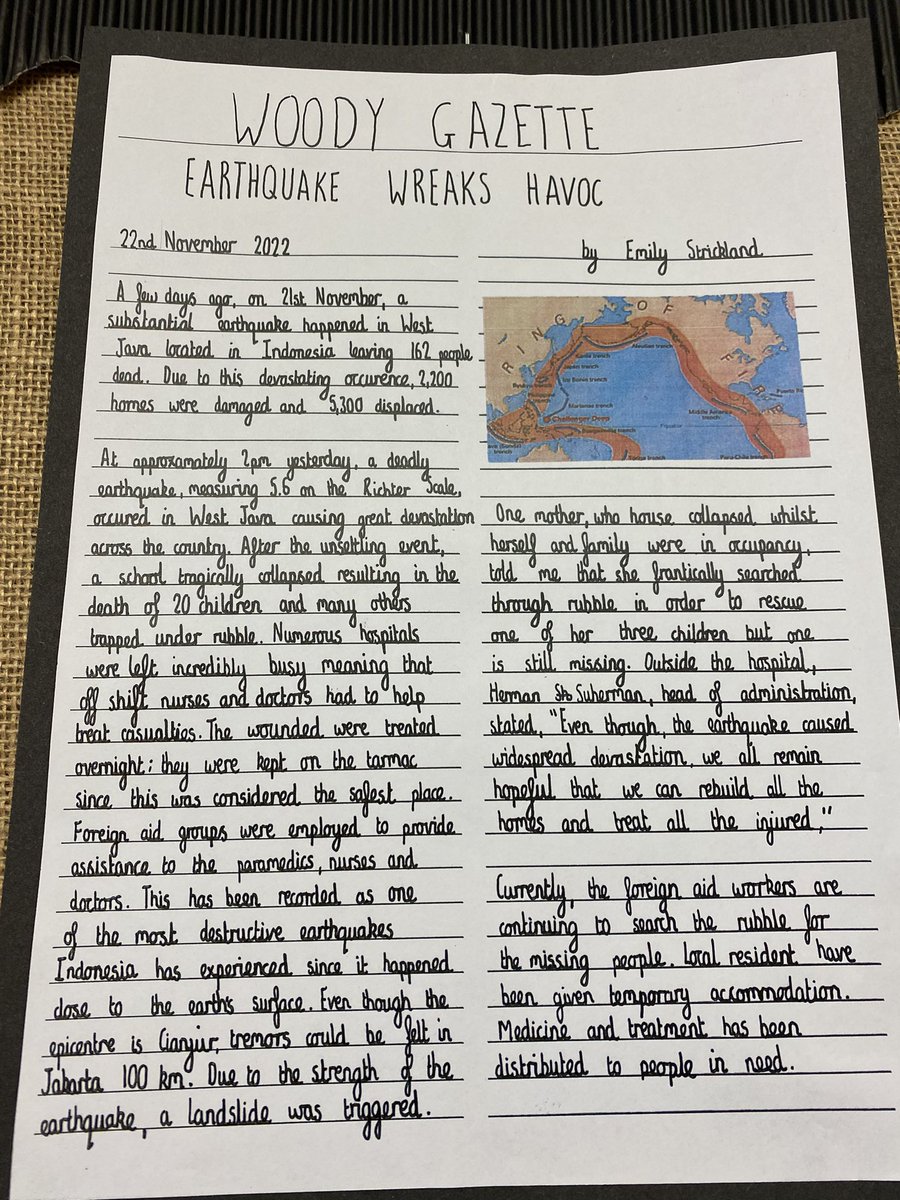 WOODY GAZETTE
EARTHQUAKE WREAKS HAVOC
22nd November 2022
by Emily Strickland
A few days ago, on 21st November, a
substantial earthquake happened in West
Java located in Indonesia leaving 162 people
dead. Due to this devastating occurence, 2,200
homes were damaged and 5,300 displaced.
At approxamately 2pm yesterday, a deadly
earthquake, measuring 5.6 on the Richter Scale,
occured in West Java causing great devastation
across the country. After the unsettling event,
a school tragically collapsed resulting in the
death of 20 children and many others
trapped under rubble. Numerous hospitals
were left incredibly busy meaning that
off shift nurses and doctors had to help
treat casualties. The wounded were treated
overnight; they were kept on the tarmac
since this was considered the safest place.
Foreign aid groups were employed to provide
assistance to the paramedics, nurses and
doctors. This has been recorded as one
of the most destructive earthquakes
Indonesia has experienced since it happened
close to the earth's surface. Even though the
epicentre is Cianjur, tremors could be felt in
Jakarta 100 km. Due to the strength of the
earthquake, a landslide was triggered.
RING OF F
Aleutian trench
Kurile trench
Japan trench
Izu Bonin trench
Marianas trench
Challenger Deep
Middle America
trench
Equator
Puerto
trench
Tonga trench
Peru-Chile trench
One mother, who house collapsed whilst
herself and family were in occupancy,
told me that she frantically searched
through rubble in order to rescue
one of her three children but one
is still missing. Outside the hospital,
Herman Suherman, head of administration,
stated, "Even though, the earthquake caused
widespread devastation, we all remain
hopeful that we can rebuild all the
homes and treat all the injured,"
Currently, the foreign aid workers are
continuing to search the rubble for
the missing people. Local resident have
been given temporary accommodation.
Medicine and treatment has been
distributed to people in need.